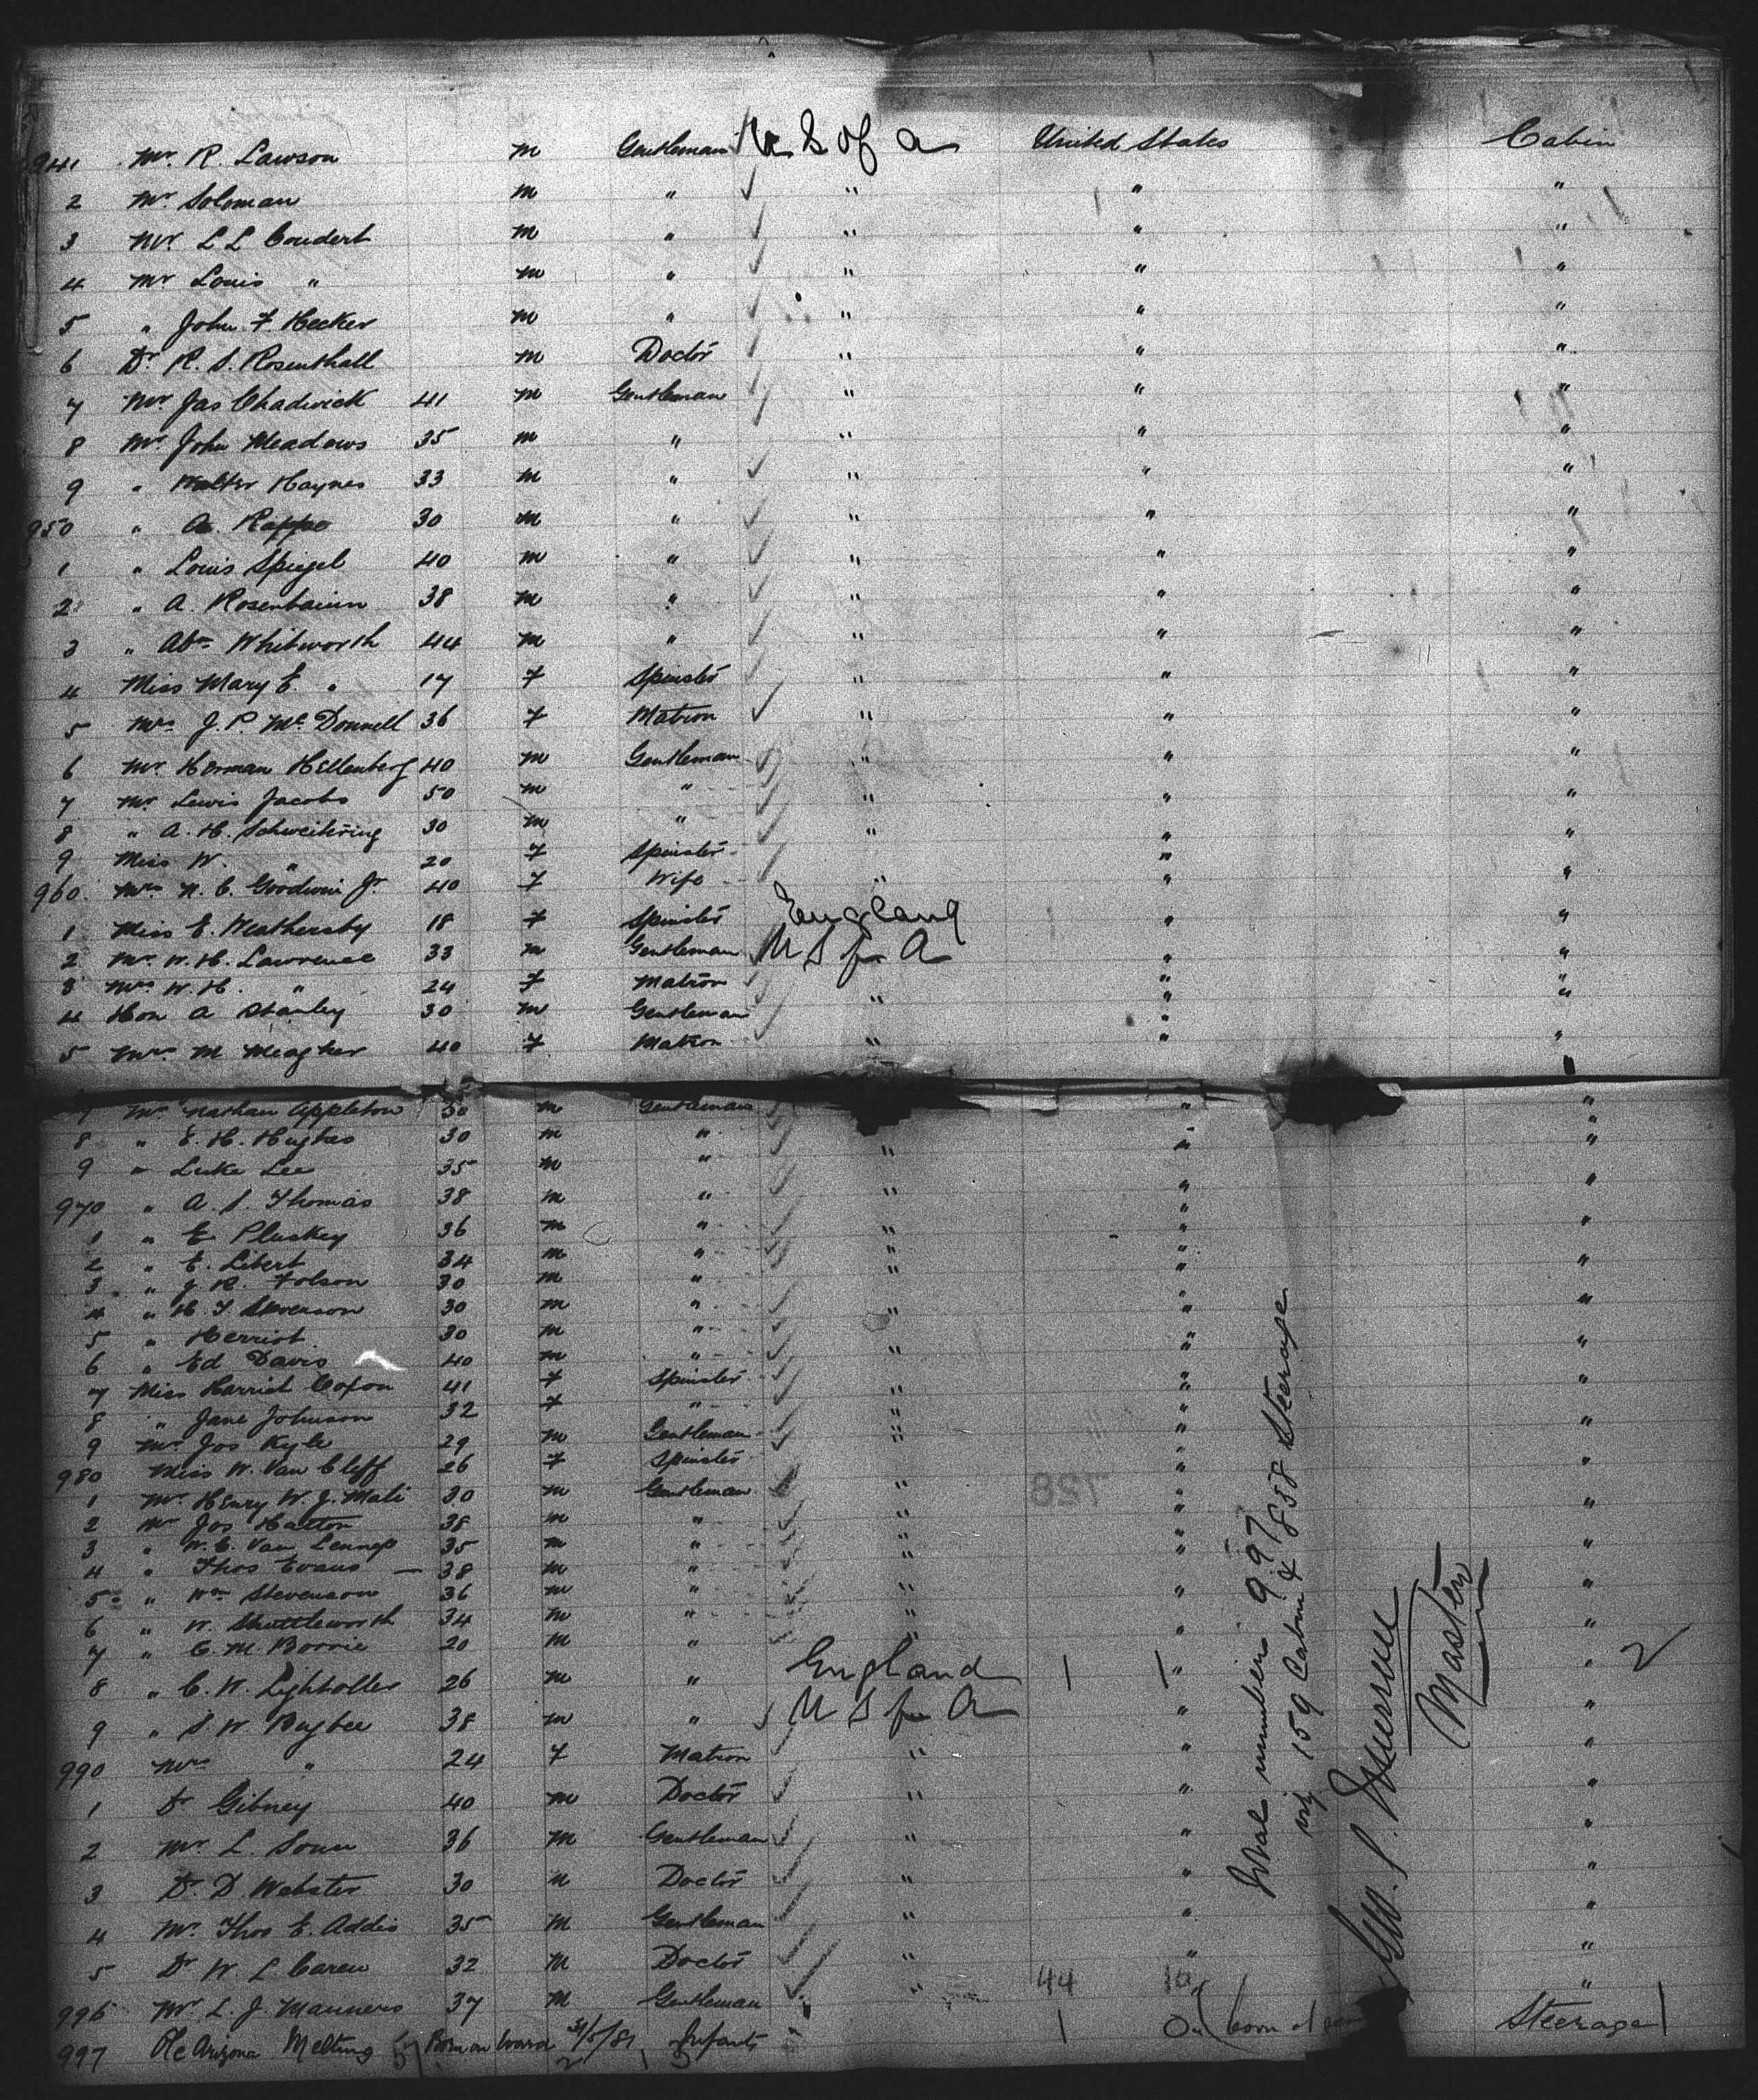 941 Mr R Lawson m Gentleman U S of A United States Cabin
2 Mr Soloman m " " " "
3 Mr L L Coudert m " " " "
4 Mr Louis " m " " " "
5 " John F Hecker m " " " "
6 Dr R. S. Rosenthall m Doctor " " "
7 Mr Jas Chadwick 41 m Gentleman " " "
8 Mr John Meadows 35 m " " " "
9 " Walter Haynes 33 m " " " "
950 " A. Rappe 30 m " " " "
1 " Louis Spiegel 40 m " " " "
2 " A. Rosenbaum 38 m " " " "
3 " Abm Whitworth 44 m " " " "
4 Miss Mary E. " 17 F Spinster " " "
5 Mrs J. P. McDonnell 36 F Matron " " "
6 Mr Herman Hellenberg 40 m Gentleman " " "
7 Mr Lewis Jacobs 50 m " " " "
8 " A. H. Schweitering 30 m " " " "
9 Miss W. " 20 F Spinster "
960 Mrs N. C. Goodwin Jr 40 F Wife " " "
1 Miss E. Weathersby 18 F Spinster England " "
2 Mr W. H. Lawrence 33 m Gentleman U S of A " "
3 Mrs W. H. " 24 F Matron " "
4 Hon A Stanley 30 m Gentleman " " "
5 Mrs M Meagher 40 F Matron " " "
7 Mr Nathan Appleton 30 m Gentleman " "
8 " E. H. Hughes 30 m " " " "
9 " Luke Lee 35 m " "
970 " A. S. Thomas 38 m " " " "
1 " E Pluskey 36 m " " " "
2 " E. Libert 34 m " " " "
3 " J R. Folson 30 m " " "
4 " H. T. 30 m " " " "
5 " Herriot 30 m " " "
6 " Ed Davis 40 m " " "
7 Miss Harriet Coxon 41 F Spinster " " "
8 " Jane Johnson 32 F " " " "
9 Mr Jos Kyle 29 m Gentleman " "
980 Miss W. Van Cleff 26 F Spinster " "
1 Mr Henry W. J. Mali 30 m Gentleman " " "
2 Mr Jos Hatton 38 m " " "
3 " W. C. Van Lennep 35 m " " " "
4 " Thos Evans 38 m " "
5 " Wm Stevenson 36 m " " " "
6 " W. Shuttleworth 34 m " " " "
7 " C. M. Borrie 20 m " "
8 " C. W. Lightoller 26 m " England 1 1 " " 2
9 " S W Bugbee 38 m " U S of A " "
990 Mrs " 24 F Matron " " "
1 Dr Gibney 40 m Doctor " " "
2 Mr L. 36 M Gentleman " " "
3 Dr D. Webster 30 m Doctor " " "
4 Mr Thos E. Addis 35 M Gentleman " " "
5 Dr W. L. Carew 32 M Doctor " " "
996 Mr L. J. Manners 37 M Gentleman " 44 "
997 Arizona Melting Born on board 31/5/81 Infants 1 born at Steerage 1
728
Total number 997
viz 159 Cabin & 838 Steerage
Geo. S. Murray
Master